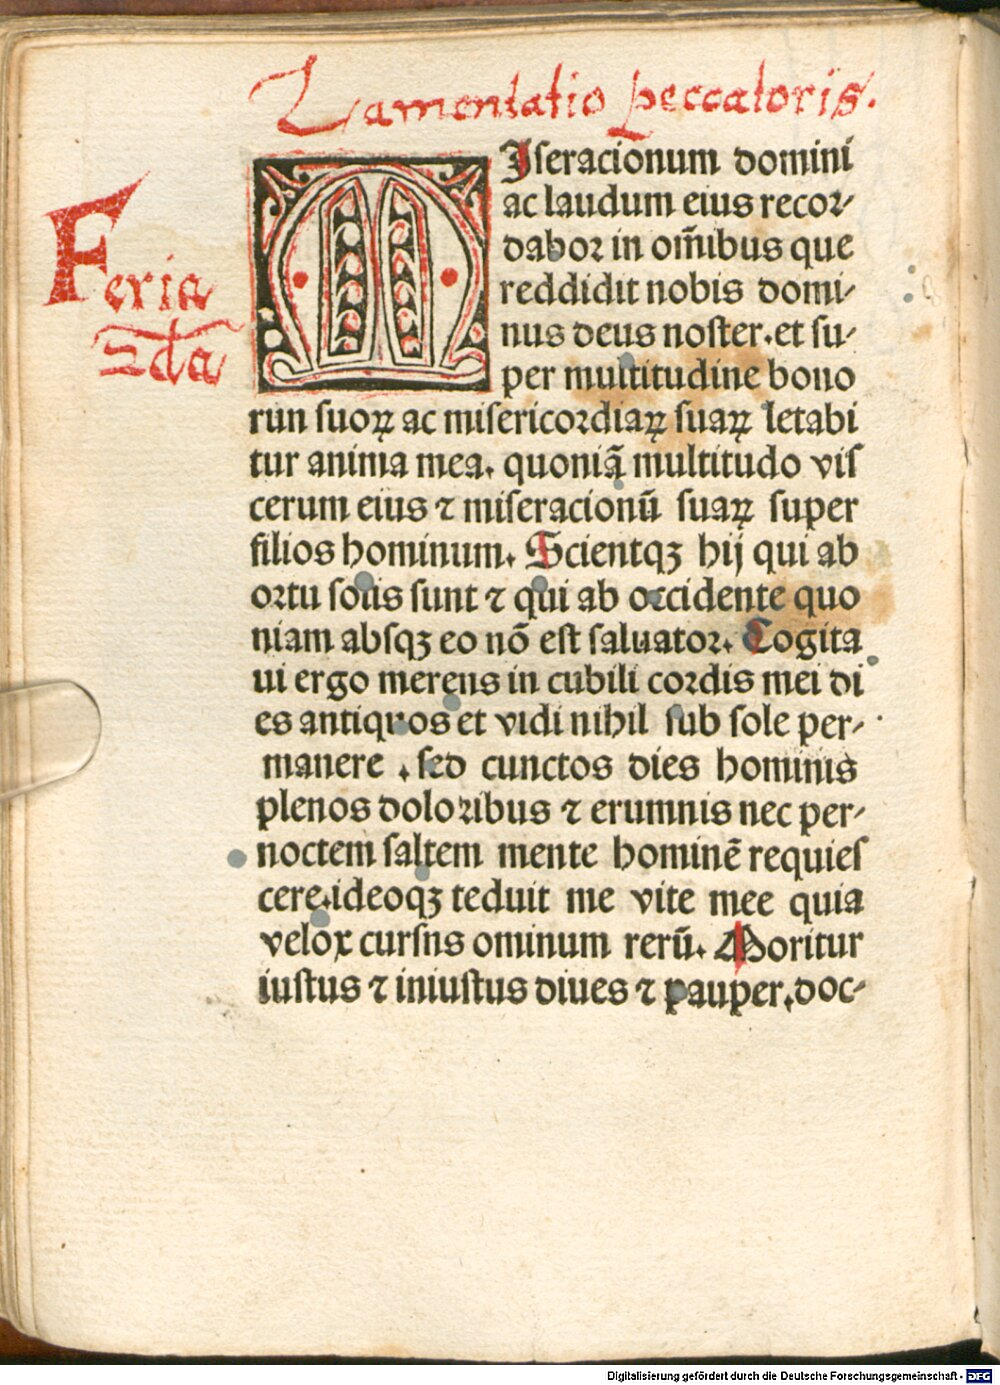 Lamentatio peccatoris.
Feria
2da
MIseracionum domini
ac laudum eius recor⸗
dabor in om̄ibus que
reddidit nobis domi⸗
nus deus noster. et su⸗
per multitudine bono
rūn suoꝝ ac misericordiaꝝ suaꝝ letabi
tur anima mea. quoniā multitudo vis
cerum eius ⁊ miseracionū suaꝝ super
filios hominum. Scientqꝫ hij qui ab
ortu solis sunt ⁊ qui ab occidente quo
niam absqꝫ eo nō est saluator. Cogita
ui ergo merens in cubili cordis mei di
es antiquos et vidi nihil sub sole per⸗
manere . sed cunctos dies hominis
plenos doloribus ⁊ erumnis nec per⸗
noctem saltem mente hominē requies
cere. ideoqꝫ teduit me vite mee quia
velox cursns ominum rerū. Moritur
iustus ⁊ iniustus diues ⁊ pauper. doc⸗
Digitalisierung gefördert durch die Deutsche Forschungsgemeinschaft - DFG